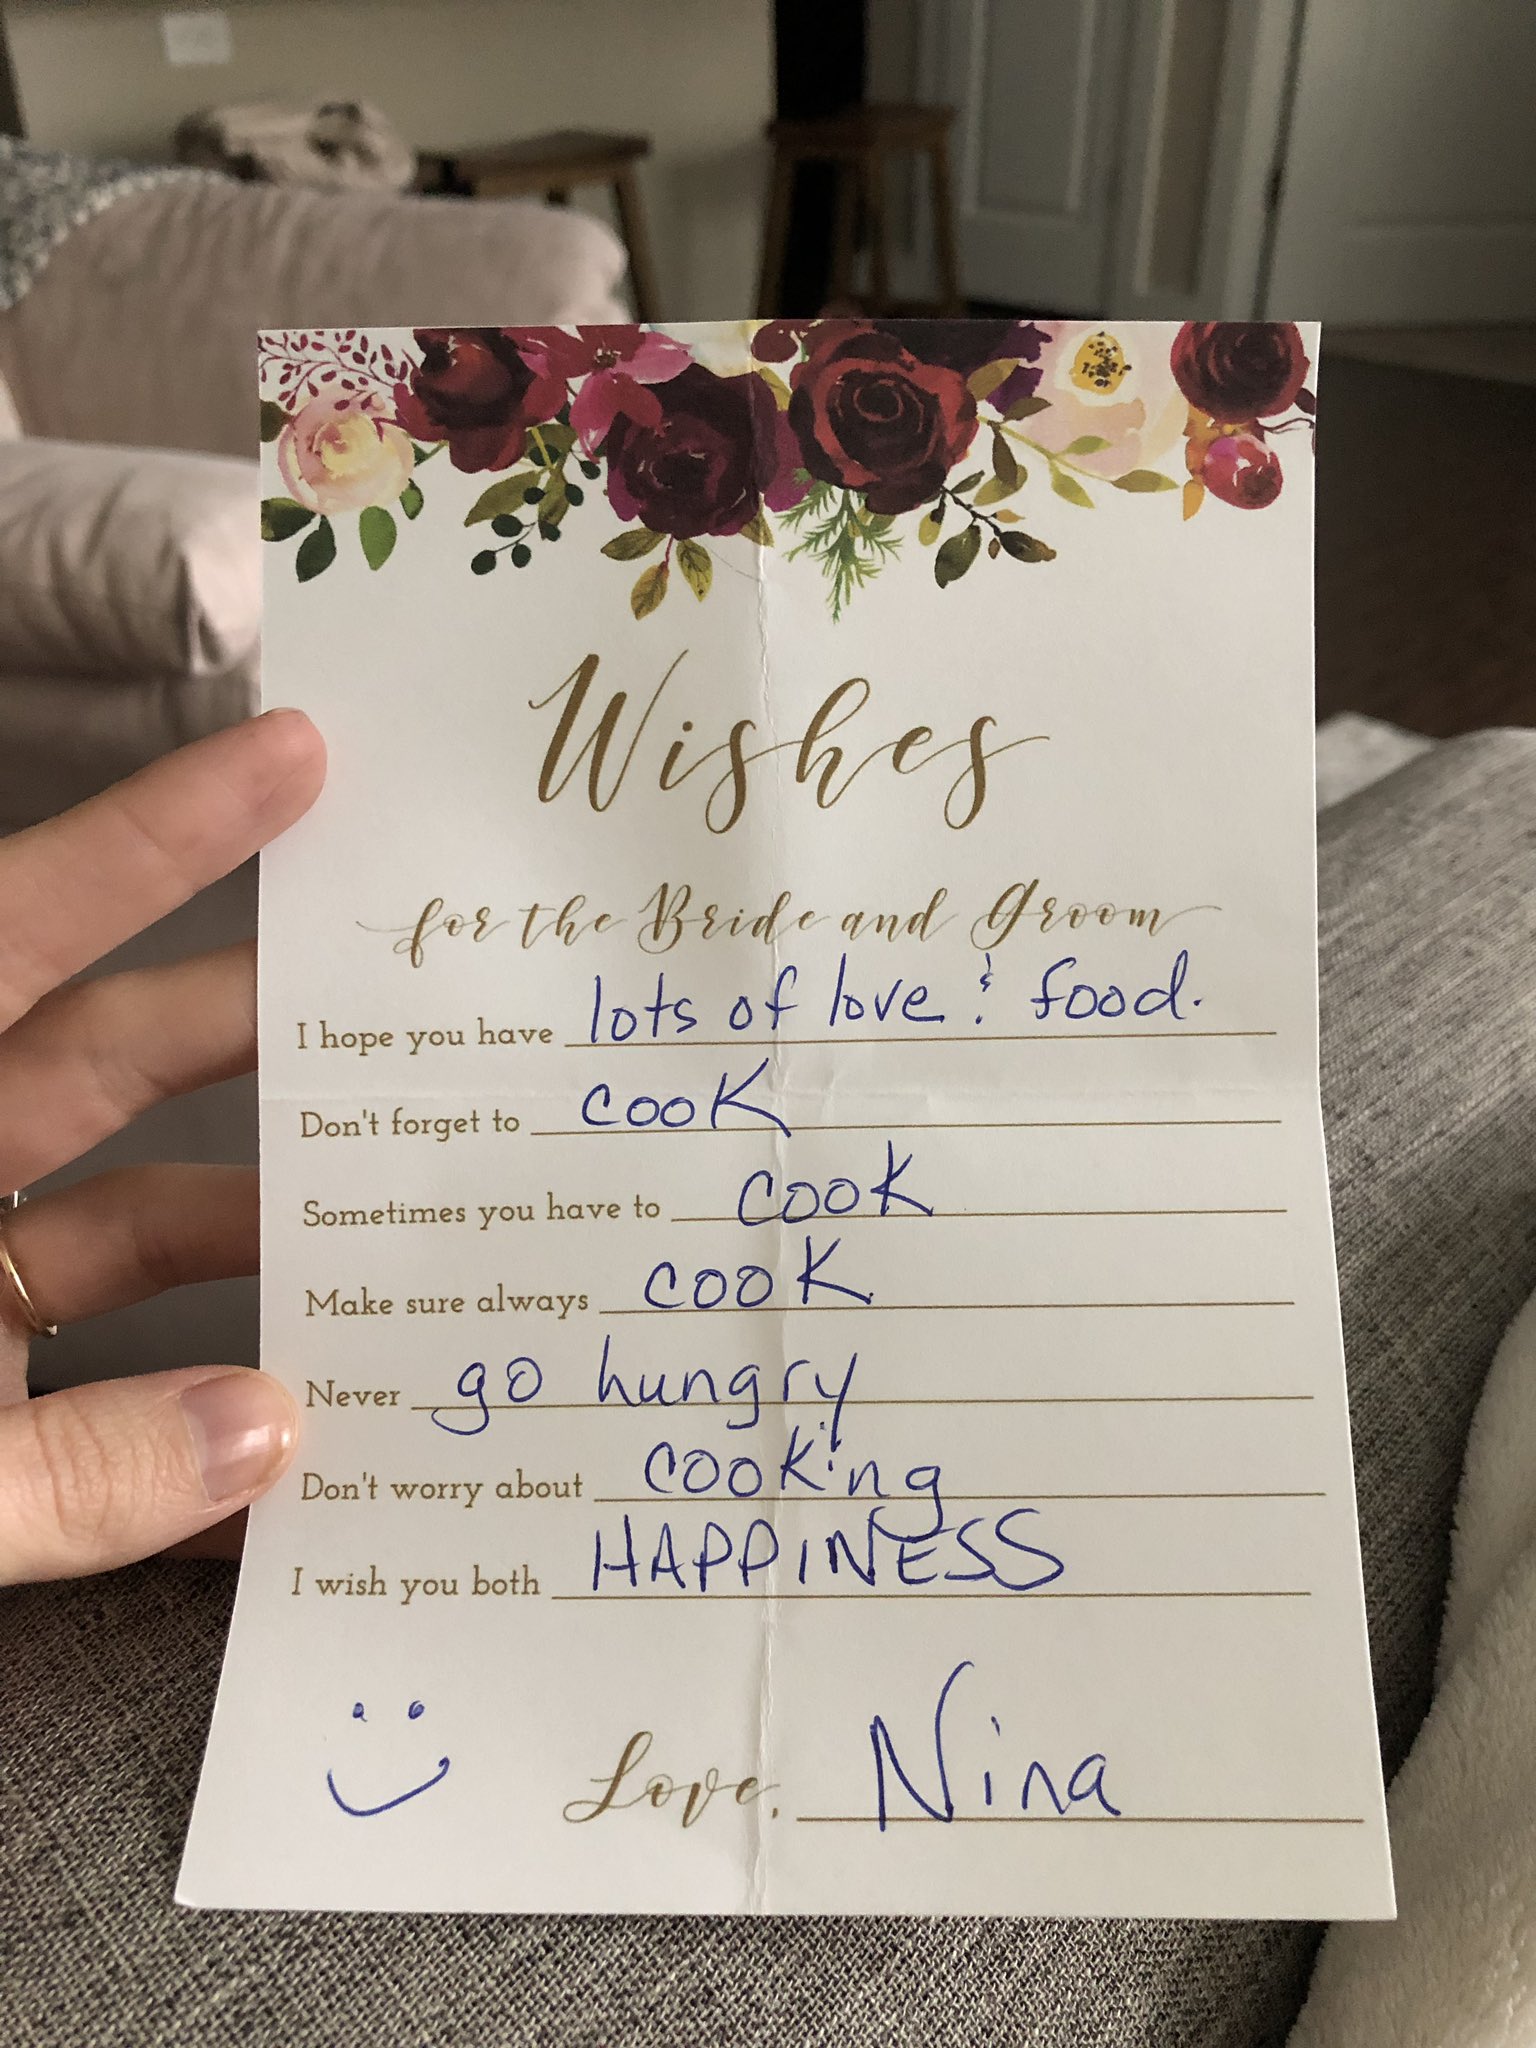 Wishes
for the Bride and Groom
I hope you have lots of love & food.
Don't forget to cook
Sometimes you have to cook
Make sure always cook
Never go hungry
Don't worry about cooking
I wish you both HAPPINESS
Love, Nina